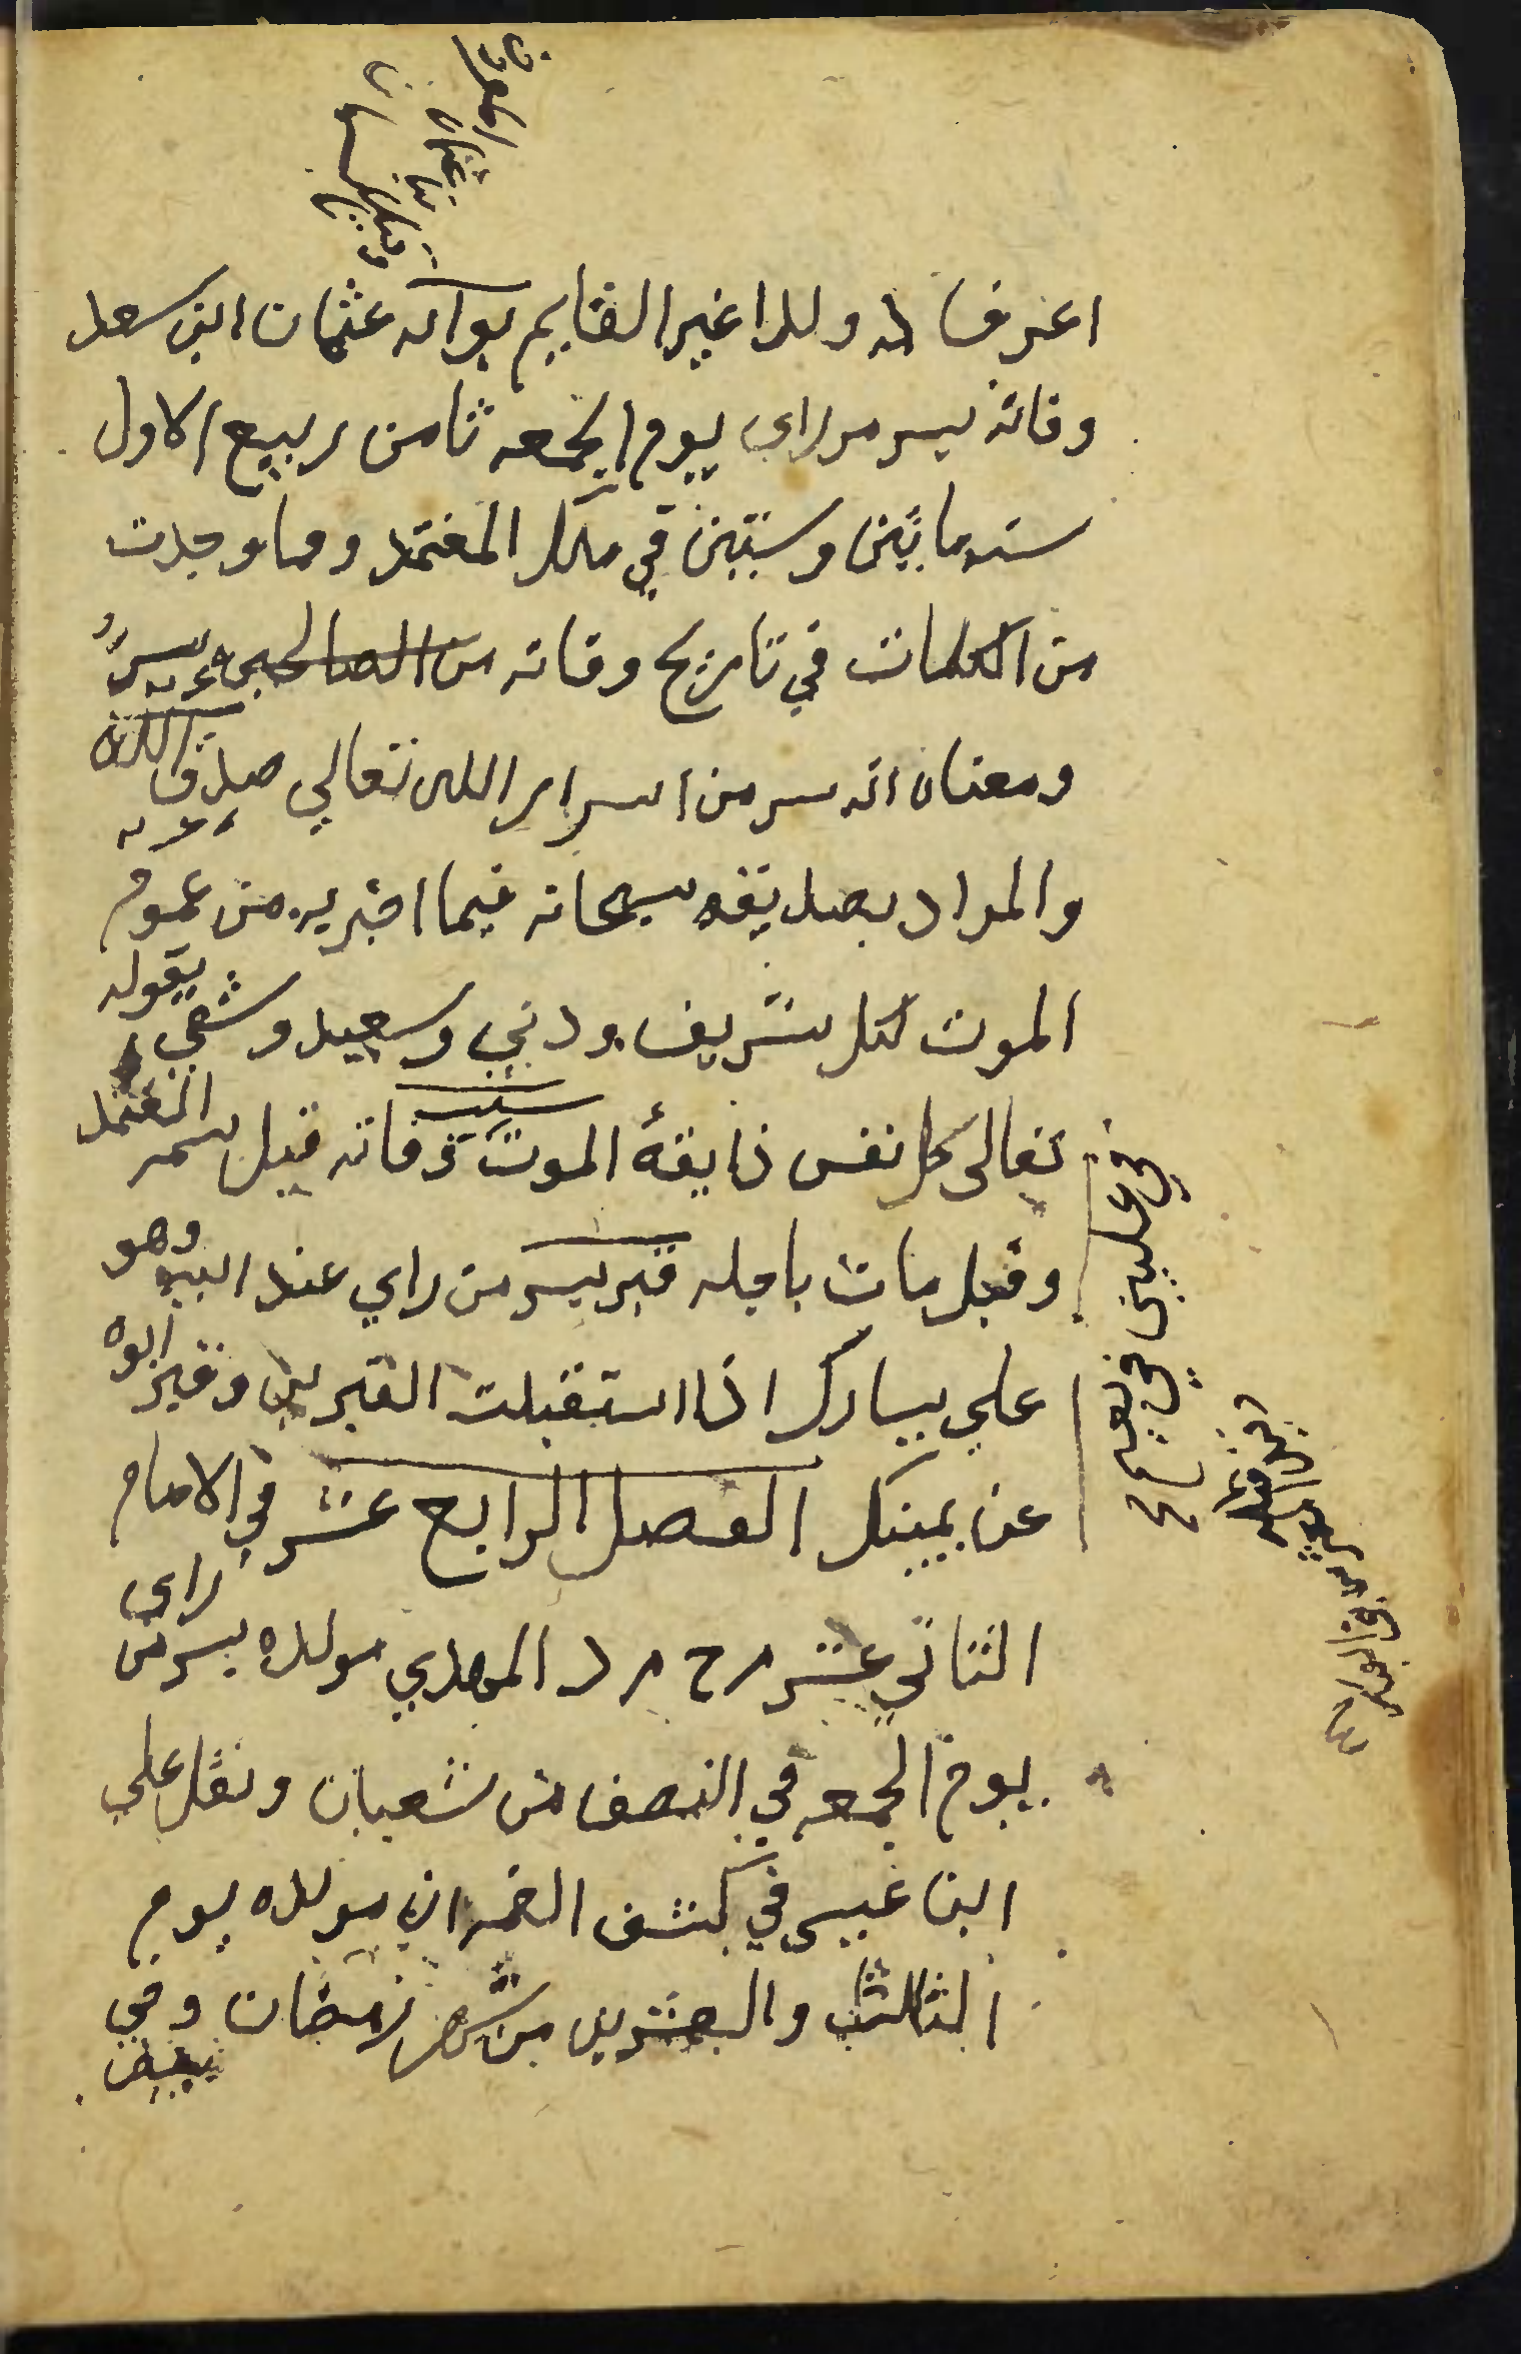 اعرف له ولدا غير القايم بوآبه عثمان ابن سعد
وفاته بسر مر راى يوم الجمعه ثامن ربيع الاول
سنه مايتين وستين في ملك المعتمد ومما وجدت
من الكلمات في تاريخ وفاته من الصالحين سر
الله
ومعناه انه سر من اسرار الله تعالي صدق
والمراد بصديقه سبحانه فيما اخبر به من عموم
الموت لكل شريف ودني وسعيد وشقي بقوله
تعالى كل نفس ذايقة الموت سبب وفاته قيل سمه المعتمد
وقيل مات باجله قبر بسر من راي عند ابيه وهو
علي يسارك اذا استقبلت القبرين وقبر ابوه
عن يمينك الفصل الرابع عشر في الامام
الثاني عشر م ح م د المهدي مولده بسر من راى
يوم الجمعه في النصف من شعبان ونقل علي
ابن عيسى في كشف الغمه ان مولده يوم
الثالث والعشرين من شهر رمضان وفي
بعض
في عليين في نعيم